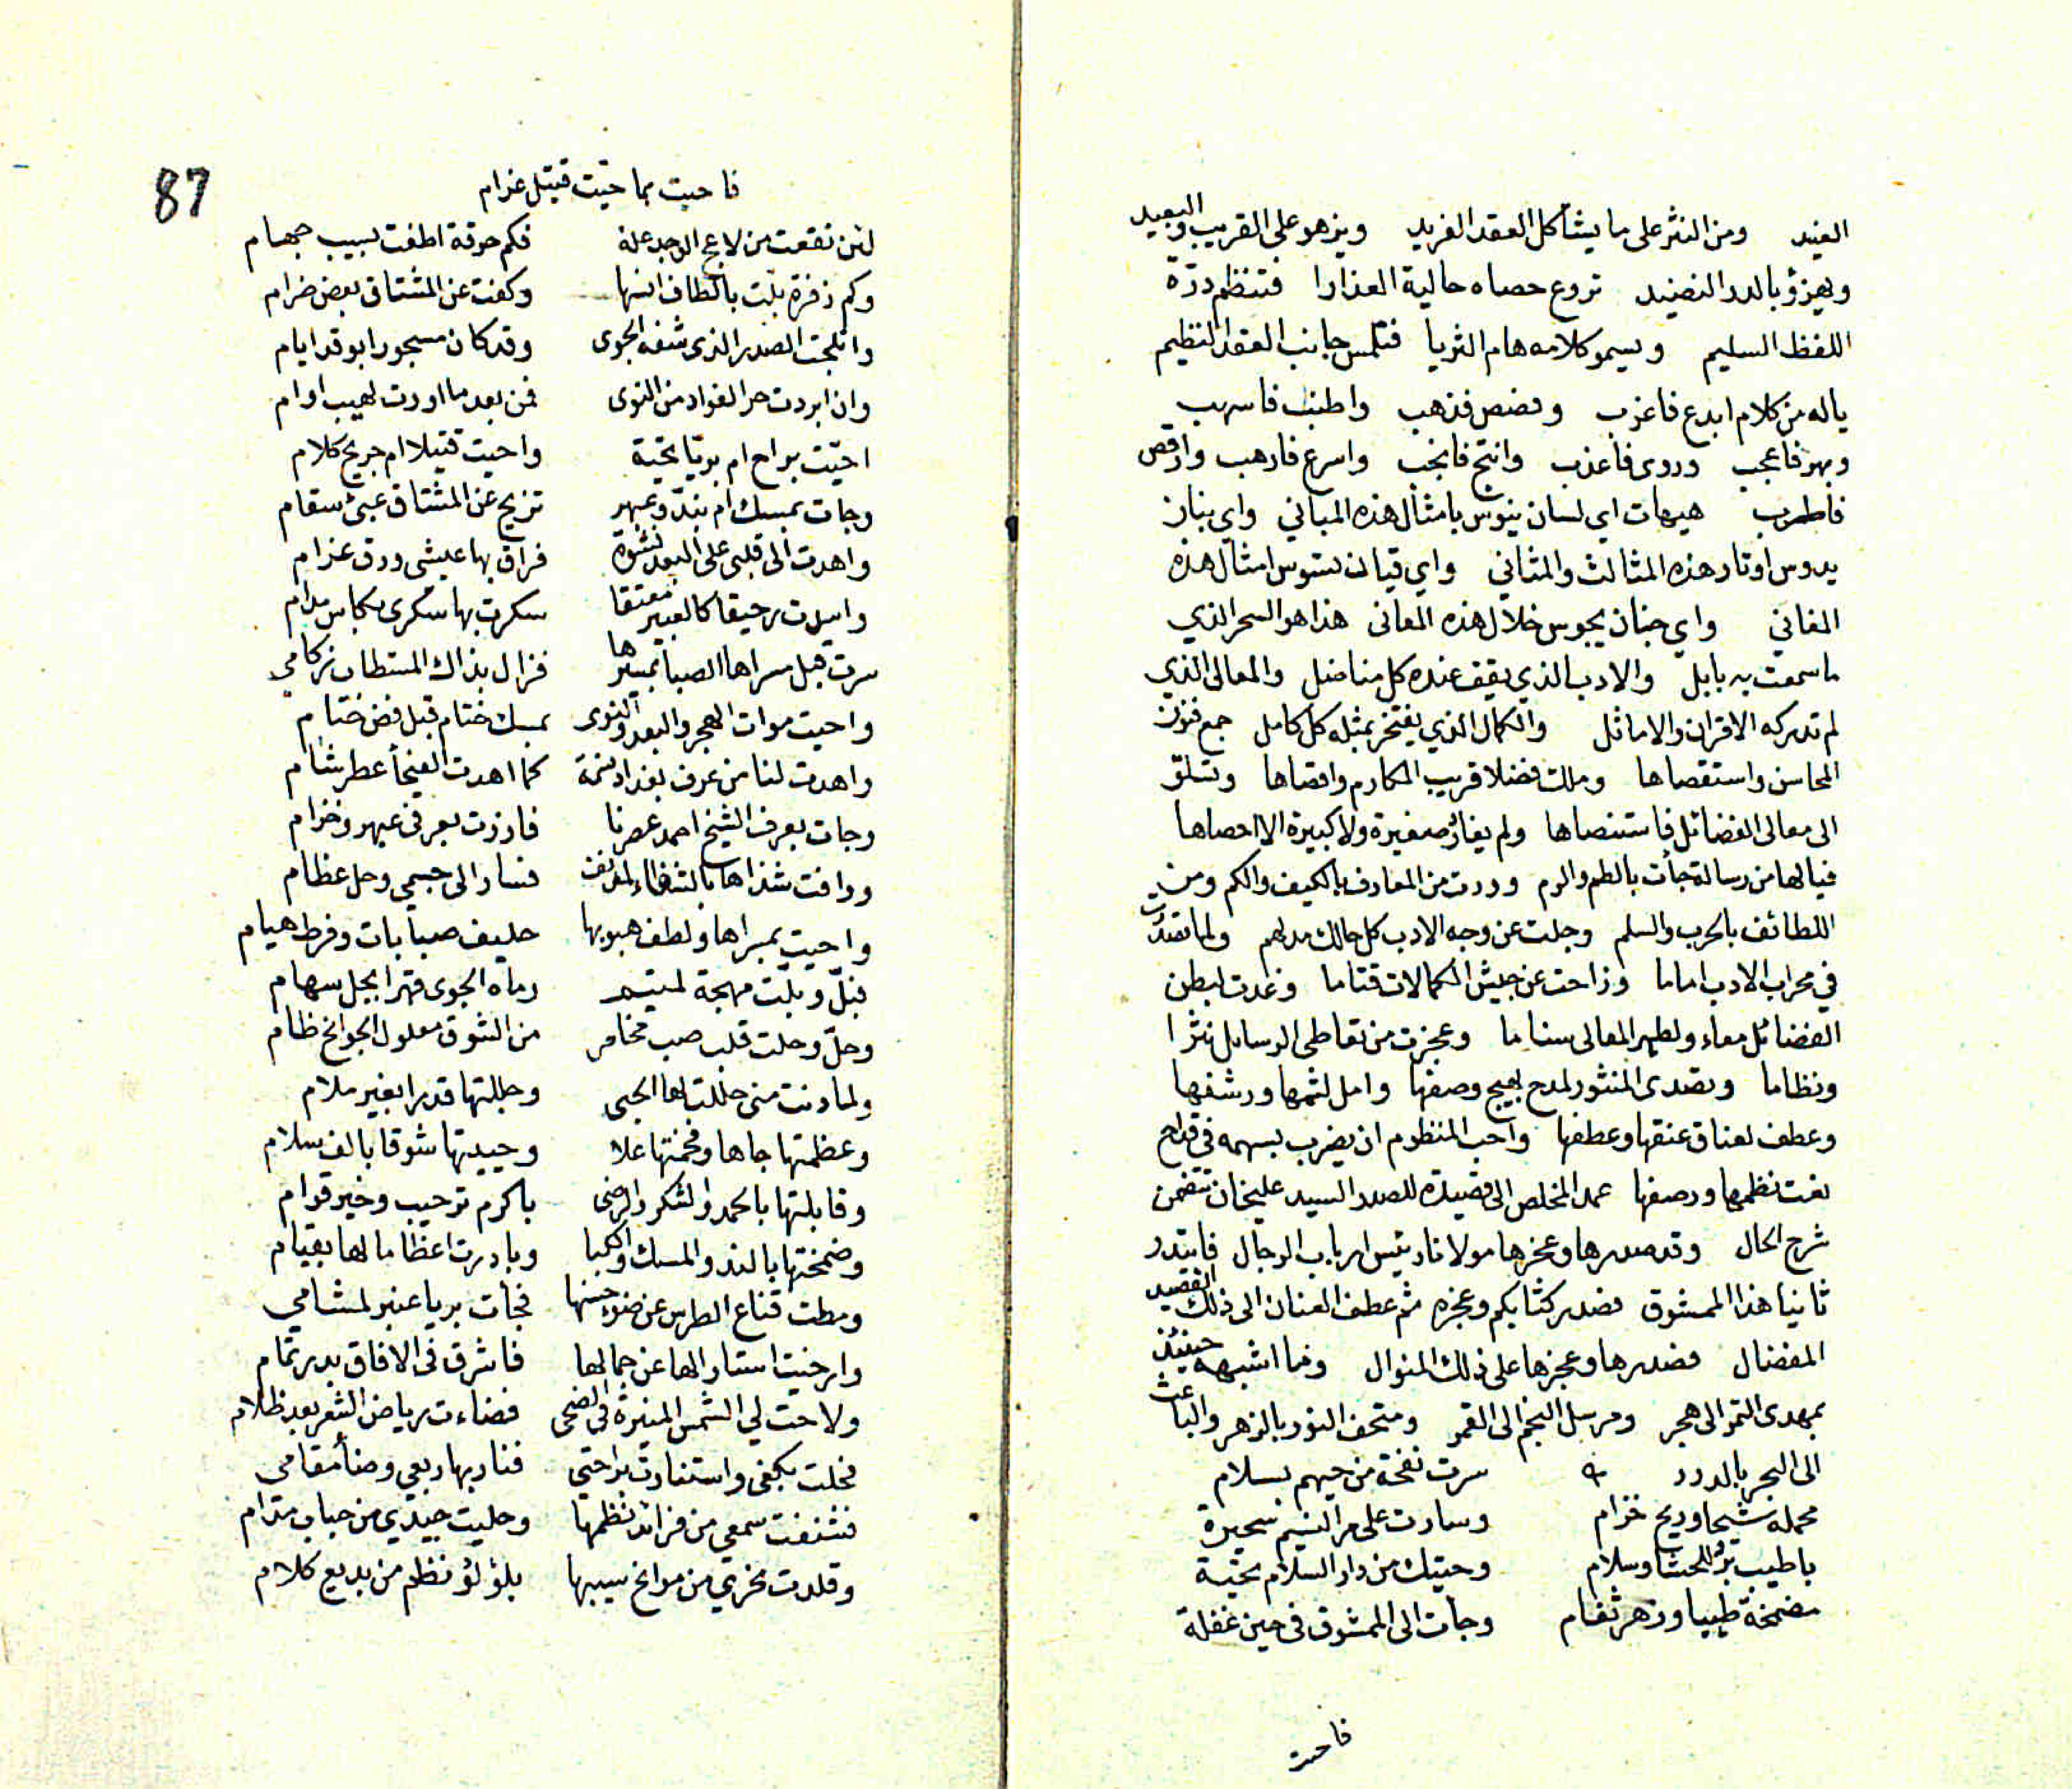 الغيد ومن النثر على ما يشاكل العقد الفريد ويزهو على القريب والبعيد
ويهزؤ بالدر النضيد تروع حصاه حالية العذارا فتنظم درّة
اللفظ السليم ويسمو كلامه هام الثريا فتلمس جانب العقد النظيم
ياله من كلام ابدع فاغرب وفضض فذهب واطنب فاسهب
وبهر فاعجب وروى فاعذب وانتج فانجب واسرع فارهب وارقص
فاطرب هيهات اي لسان ينوش بامثال هذه المباني واي بنان
يدوس اوتار هذه المثالث والمثاني واي قيان تسوس امثال هذه
المغاني واي جنان يجوس خلال هذه المعانى هذا هو السحر الذي
ما سمعت به بابل والادب الذي يقف عنده كل مناضل والمعالى الذي
لم تدركه الاقران والاماثل والكمال الذي يفتخر بمثله كل كامل جمع فنون
المحاسن واستقصاها وملك فضلا قريب المكارم واقصاها وتسلق
الى معالى الفضائل فاستنصاها ولم يغادر صغيرة ولا كبيرة الا احصاها
فيالها من رسالة جأت بالطم والرم ووردت من المعارف بالكيف والكم ومن
اللطائف بالحرب والسلم وجلت عن وجه الادب كل حالك مدلهم ولما تصدّرت
في محراب الادب اماما وزاحت عن جيش الكمالات قتاما وغدت لبطن
الفضائل معاء ولظهر المعالى سناما وعجزت من تعاطى الرسايل نثرا
ونظاما وتصدى المنثور لمدح بهيج وصفها وامل لثمها ورشفها
وعطف لعناق عنقها وعطفها واحب المنظوم ان يضرب بسهمه فى قداح
نعت نظمها ورصفها عمد المخلص الى قصيدة للصدر السيد عليخان تتضمن
شرح الحال وقد صدرها وعجزها مولانا رئيس ارباب الرجال فابتدر
ثانيا هذا الممشوق فصدر كتابكم وعجزه ثم عطف العنان الى ذلك القصيد
المفضال فصدرها وعجزها على ذلك المنوال وما اشبهه حينئذ
بمهدى التمر الى هجر ومرسل النجم الى القمر ومتحف النور بالزهر والباعث
الى البحر بالدرر سرت نفحة من حيهم بسلام
محملة شيحا وريح خزام وسارت على مر النسيم سحيرة
باطيب برء للحشا وسلام وحيتك من دار السلام تحية
مضمخة طيبا وزهر ثغام وجأت الى الممشوق فى حين غفلة
فاحيت
87
فاحيت بما حيّت قتيل غرام
لئن نقعت من لاعج الوجد علة فكم حرقة اطفت بسيب جهام
وكم زفرة بلت بالطاف انسها وكفت عن المشتاق بعض ضرام
واثلجت الصدر الذى شفه الجوى وقد كان مسجورا بوقد ايام
وان ابردت حر الفواد من النوى فمن بعد ما اورت لهيب اوام
احيّت براح ام بريّا تحية واحيت قتيلا ام جريح كلام
وجات بمسك ام بندّ وعبهر تزيح عن المشتاق عبئ سقام
واهدت الى قلبى على البعد نشوة فراق بها عيشى ورق غرام
واسدت رحيقا كالعبير معتقا سكرت بها سكرى بكاس مدام
سرت قبل مسراها الصبا بمسيرها فزال بذاك المستطاب زكامي
واحيت موات الهجر والبعد والنوى بمسك ختام قبل فض ختام
واهدت لنا من عرف بغداد نسمة كما اهدت الفيحأ عطر شام
وجات بعرف الشيخ احمد عصرنا فازرت بعرفى عبهر وخزام
ووافت شذاها بالشفاء لمدنف فسار الى جسمي وحل عظام
واحيت بمسراها ولطف هبوبها حليف صبابات وفرط هيام
فبلّ وبلّت مهجة لمتيم رماه الجوى قهرا بجل سهام
وحلّ وحلت قلب صب مخامر من الشوق معلول الجوانح ظام
ولما دنت منى حللت لها الحبى وجللتها قدرا بغير ملام
وعظمتها جاها وفخمتها علا وحييتها شوقا بالف سلام
وقابلتها بالحمد والشكر والرضى باكرم ترحيب وخير قوام
وضمختها بالند والمسك والكبا وبادرت اعظاما لها بقيام
ومطت قناع الطرس عن ضوء حسنها فجأت بريا عنبر لمشامي
وارخيت استارا لها عن جمالها فاشرق فى الافاق بدر تمام
ولاحت لي الشمس المنيرة فى الضحى فضاءت رياض الشعر بعد ظلام
فحلت بكفى واستنارت براحتى فنار بها ربعي وضأ مقامى
فشنفت سمعي من فرائد نظمها وحليت جيدي من حباب مدام
وقلدت نحري من موانح سيبها بلؤلؤ نظم من بديع كلام